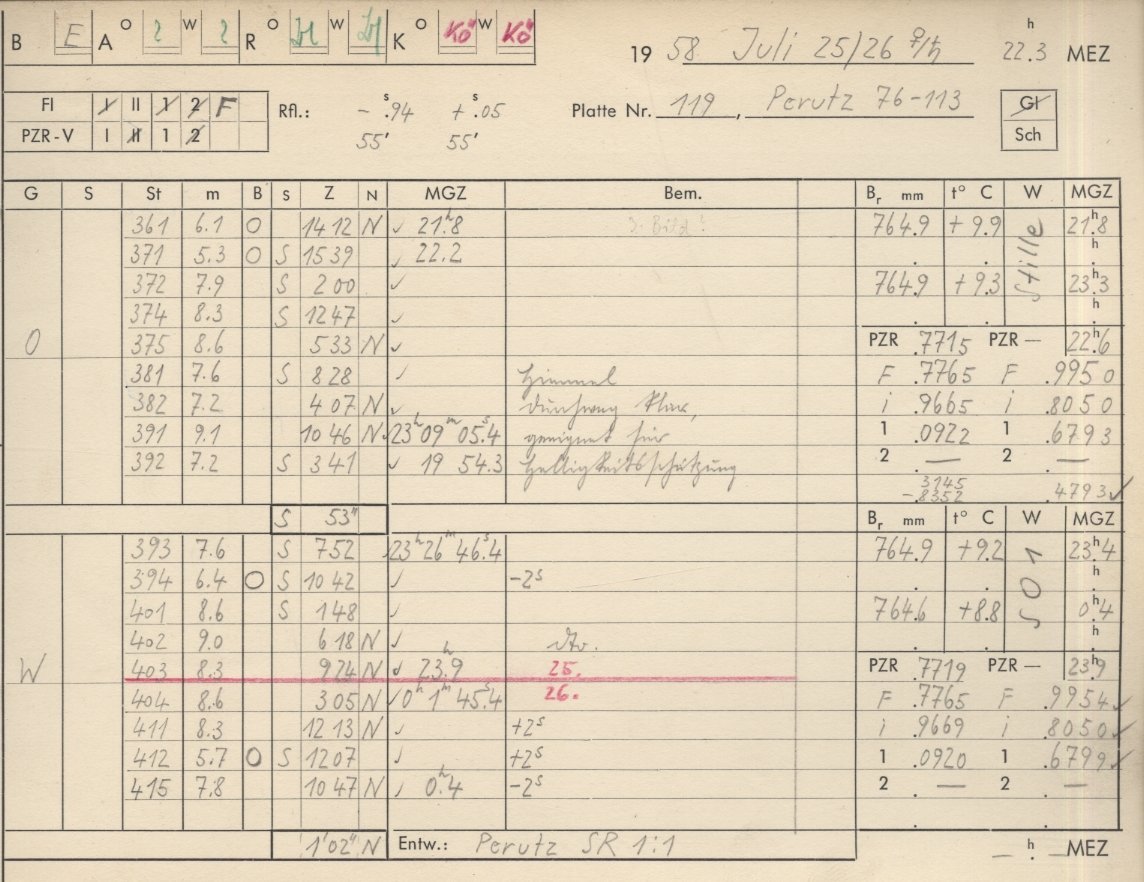 B E A O W R O W K O Kö W Kö
19 58 Juli 25/26 ♀/♄ h 22.3 MEZ
FI I II 1 2 F
PZR-V I II 1 2
Rfl.: - s.94 + s.05
55' 55'
Platte Nr. 119, Perutz 76-113
Gl
Sch
G S St m B S Z N MGZ Bem. Br mm t° C W MGZ
361 6.1 O 14 12 N ✓ 21h.8 764.9 +9.9 Stille 21h.8
371 5.3 O S 15 39 ✓ 22.2 h
372 7.9 S 2 00 ✓ 764.9 +9.3 23h.3
374 8.3 S 12 47 ✓ h
O 375 8.6 5 33 N ✓ PZR .7715 PZR — 22h.6
381 7.6 S 8 28 ✓ Himmel F .7765 F .9950
382 7.2 4 07 N ✓ durchweg klar, i .9665 i .8050
391 9.1 10 46 N ✓ 23h 09m 05s.4 geeignet für 1 .0922 1 .6793
392 7.2 S 3 41 ✓ 19 54.3 Helligkeitsschätzung 2 . — 2 . —
3145
-.8352 .4793 ✓
S 53" Br mm t° C W MGZ
393 7.6 S 7 52 ✓ 23h 26m 46s.4 764.9 +9.2 SO 1 23h.4
394 6.4 O S 10 42 ✓ -2s h
401 8.6 S 1 48 ✓ 764.6 +8.8 0h.4
402 9.0 6 18 N ✓ dto. h
W 403 8.3 9 24 N ✓ 23h.9 25. PZR .7719 PZR — 23h.9
404 8.6 3 05 N ✓ 0h 1m 45s.4 26. F .7765 F .9954 ✓
411 8.3 12 13 N ✓ +2s i .9669 i .8050 ✓
412 5.7 O S 12 07 ✓ +2s 1 .0920 1 .6799 ✓
415 7.8 10 47 N ✓ 0h.4 -2s 2 . — 2 . —
1'02" N Entw.: Perutz SR 1:1 — h. — MEZ